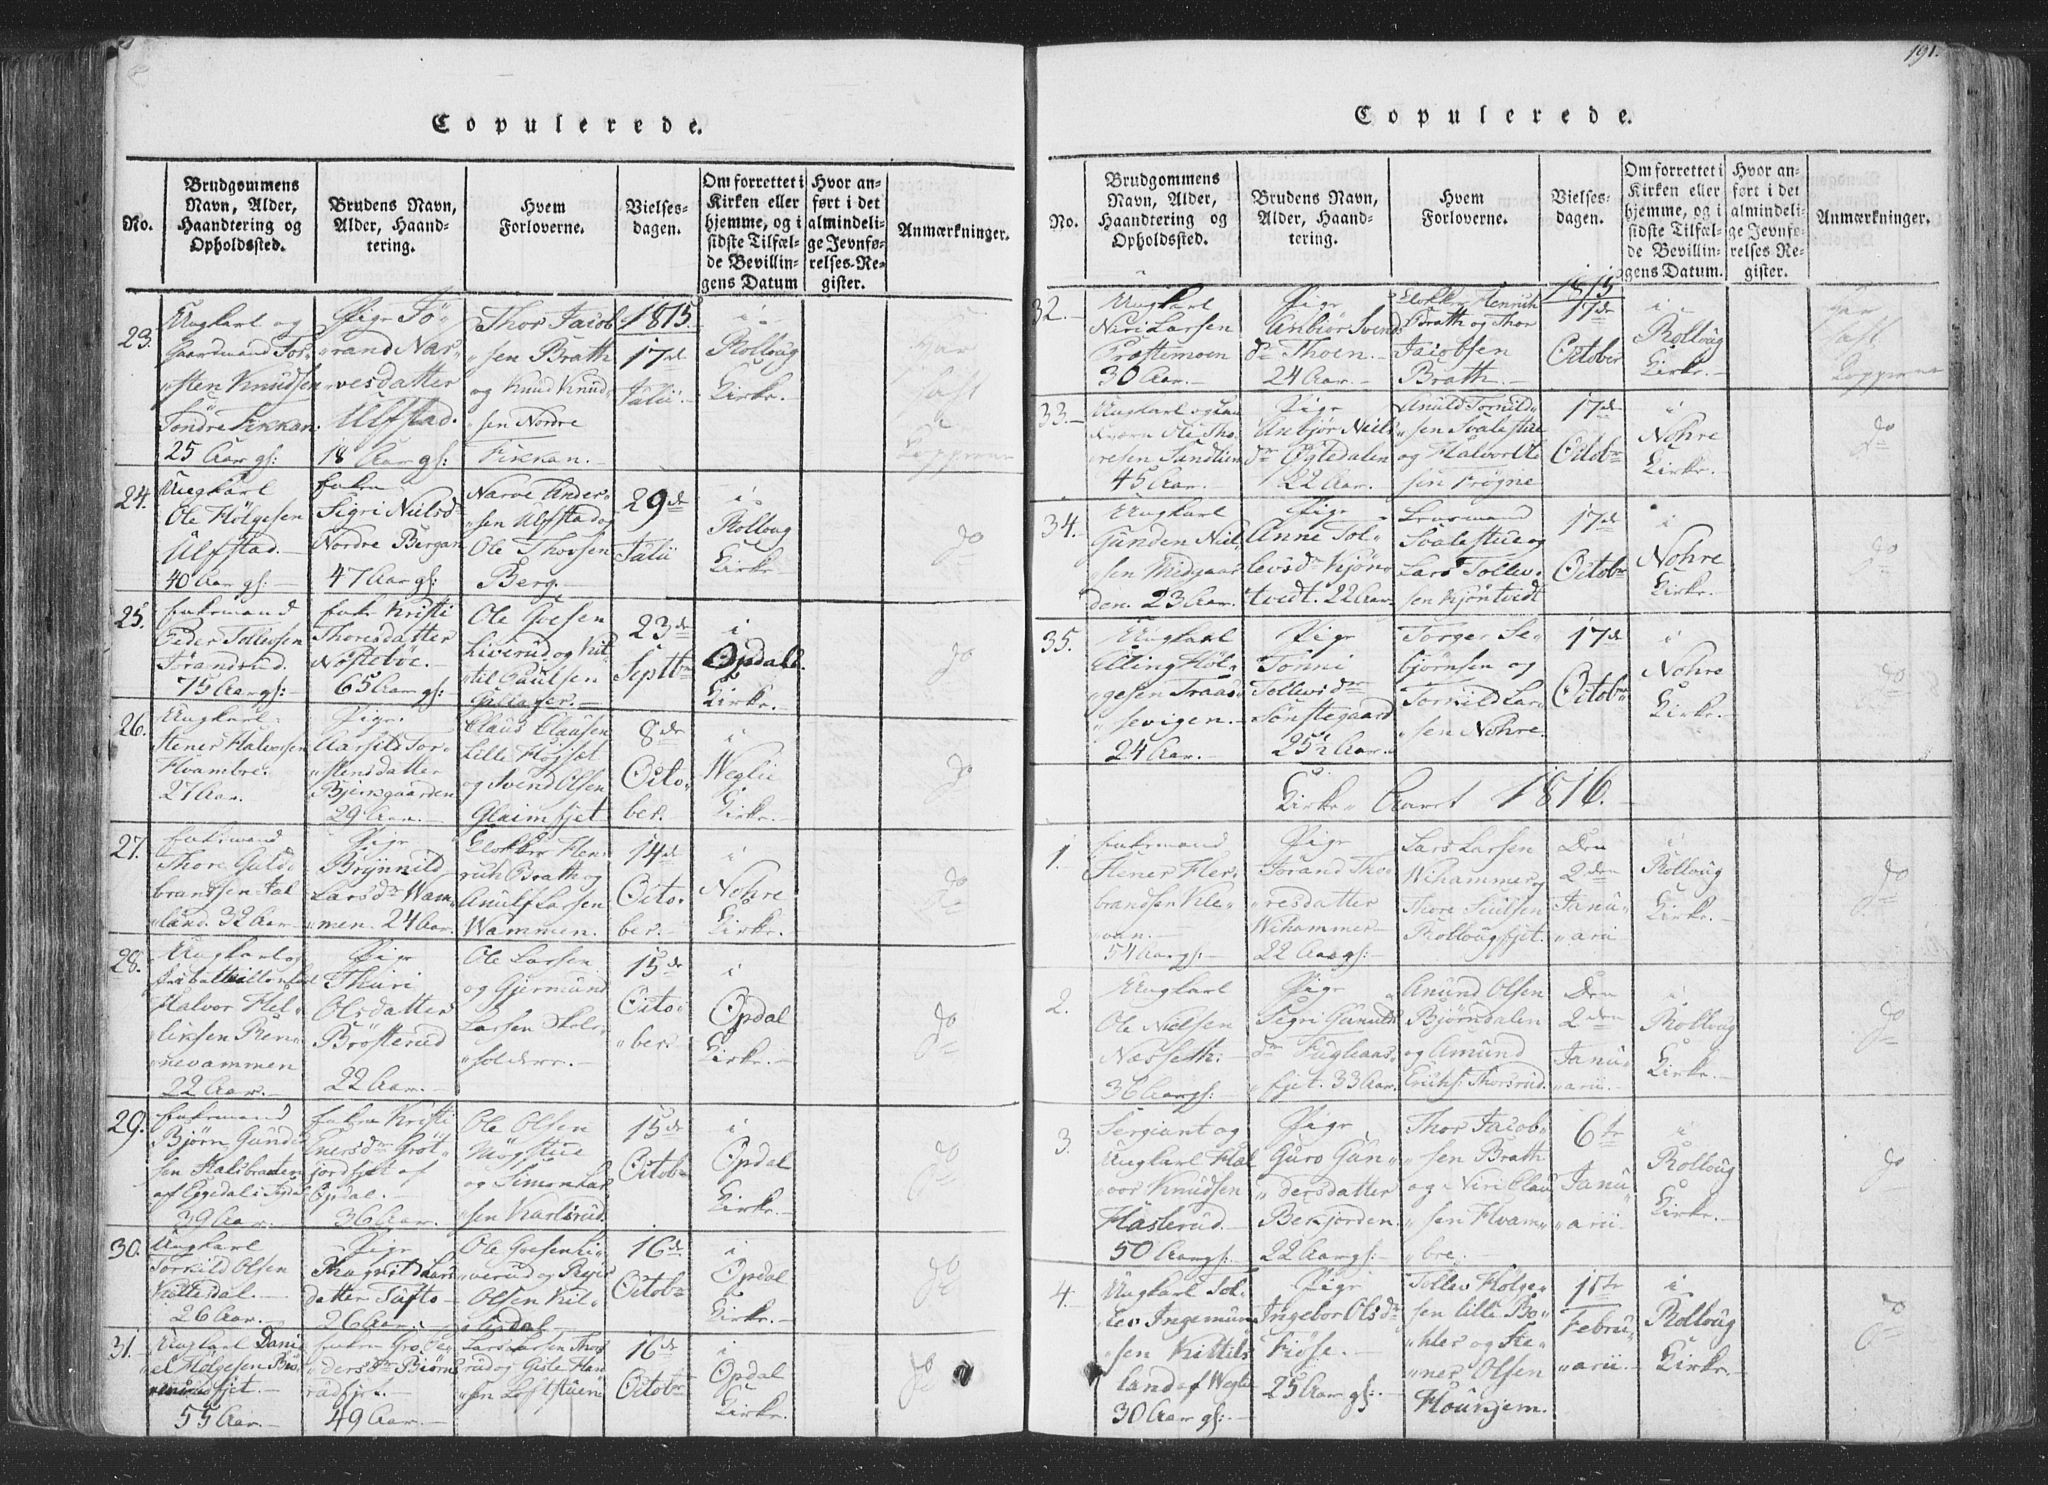 191.
Copulerede.
No.
Brudgommens
Navn, Alder,
Haandtering og
Opholdssted.
Brudens Navn,
Alder, Haand-
tering.
Hvem
Forloverne.
Vielses-
dagen.
Om forrettet i
Kirken eller
hjemme, og i
sidste Tilfæl-
de Bevillin-
gens Datum
Hvor an-
ført i det
almindeli-
ge Jevnfø-
relses-Re-
gister.
Anmærkninger.
23.
Ungkarl og
Gaardmand Tor-
"sten Knudsen
Söndre Fikkan.
25 Aar gl:
Pige Tö-
"rand Nar-
"vesdatter
Ulfstad.
18 Aar gl:
Thor Jacob-
"sen Brath
og Knud Knud-
"sen Nordre
Fikkan.
1815.
17de
Julii
i
Rolloug
Kirke.
Har
haft
Kopperne
24.
Ungkarl
Ole Hölgesen
Ulfstad.
40 Aar gl:
Enke
Sigri Nielsd
Nordre Bergan
47 Aar gl:
Narve Ander-
"sen Ulfstad og
Ole Thorsen
Berg.
29de
Julii
i
Rolloug
Kirke.
do
25.
Enkemand
Peder Tollevsen
Strandrud.
75 Aar gl:
Enke Kristi
Thoresdatter
Nösteböe.
65 Aar gl:
Ole Ovesen
Liverud og Kit-
til Paulsen
23de
Septbr
i
Opdals
Kirke.
do
26.
Ungkarl
Stener Halvorsen
Hvambre.
27 Aar.
Pige
Aarsild Tor-
"stensdatter
Bjerkgaarden
29 Aar.
Claus Clausen
Lille Högset
og Svend Olsen
Glaimfjet
8de
Octo-
ber.
i
Weglie
Kirke.
do
27.
Enkemand
Thore Guld-
brandsen Jul-
"land. 32 Aar
Pige
Brÿnild
Larsdr Wam-
"men. 24 Aar.
Klokker Hen-
rich Brath og
Anulf Larsen
Wammen.
14de
Octo-
ber.
i
Nohre
Kirke.
do
28.
Ungkarl og
Halvor Hel-
liksen Ren-
"nevammen
22 Aar.
Pige
Thuri
Olsdatter
Brösterud
22 Aar.
Ole Larsen
og Gjermund
Larsen Skols-
15de
Octo-
"ber
i
Opdal
Kirke.
do
29.
Enkemand
Björn Gunder
sen Halsbraaten
af Eggedal i Sigdal
39 Aar.
Enke Kristi
Enersdr Gröt-
jordfjet af
Opdal.
36 Aar.
Ole Olsen
Mögstue
og Simon Lar
"sen Karlsrud.
15de
Octobr
i
Opdal
Kirke.
do
30.
Ungkarl
Torkild Olsen
Kittilsdal.
26 Aar.
Pige
Ragnild Lars
datter Tufto
26 Aar.
Ole Ovesen Li-
"verud og Reier
Olsen Kit-
"tilsdal
16de
Octobr
i
Opdal
Kirke.
do
31.
Ungkarl Dani
el Holgesen Biö-
fjet.
55 Aar.
Enken Gro Pe-
dersdr Biörne-
rudfjet.
49 Aar.
Lars Larsen Thos
rud og Gisle Han
"sen Loftstuen
16de
Octobr
i
Opdal
Kirke.
do
Copulerede.
No.
Brudgommens
Navn, Alder,
Haandtering og
Opholdssted.
Brudens Navn,
Alder, Haand-
tering.
Hvem
Forloverne.
Vielses-
dagen.
Om forrettet i
Kirken eller
hjemme, og i
sidste Tilfæl-
de Bevillin-
gens Datum.
Hvor an-
ført i det
almindeli-
ge Jevnfø-
relses-Re-
gister.
Anmærkninger.
32.
Ungkarl
Niri Larsen
Prostemoen
30 Aar.
Pige
Anbiör Svends
dr Thoen.
24 Aar.
Klokker Henrich
Brath og Thor
Jacobsen
Brath.
1815
17de
October
i
Rolloug
Kirke.
har
haft
Kopperne
33.
Ole Tho-
resen Sandluen
45 Aar.
Pige
Anbjör Niels
dr Ögledalen
22 Aar.
Anuld Torkild-
"sen Svalestue
og Halvor Ole
sen Frögne
17de
Octobr
i
Nohre
Kirke.
do
34.
Ungkarl
Gunden Niel-
"sen Midgaar
den. 23 Aar.
Pige
Anne Tol-
levsdr Kjön-
tvedt. 22 Aar.
Svalestue og
Lars Tollev-
sen Kjöntvedt
17de
Octobr
i
Nohre
Kirke.
do
35.
Ungkarl
Elling Höl-
"gesen Traas-
"sevigen.
24 Aar.
Pige
Tonni
Tollevsdr
Sönstegaard
25½ Aar.
Torger Se-
björnsen og
Torkild Lar-
"sen Nohre.
17de
Octobr
i
Nohre
Kirke.
do
Kirke-Aaret 1816.
1.
Enkemand
Stener Her-
brandsen Kle-
"ven.
54 Aar gl:
Pige
Torand Tho-
"resdatter
Wihammer
22 Aar gl:
Lars Larsen
Wihammer og
Thore Siulsen
Rollougfjet.
Den
2den
Janu-
"arii
i
Rolloug
Kirke.
do
2.
Ungkarl
Ole Nielsen
Næsseth.
36 Aar gl:
Pige
Sigri Gunulds
dr Fugleaas-
fjet. 33 Aar.
Anund Olsen
Björndalen
og Amund
Erichs: Thorsrud.
Den
2den
Janu-
"arii.
i
Rolloug
Kirke.
do
3.
Sergiant og
Ungkarl Hal
"vor Knudsen
Haslerud.
50 Aar gl:
Pige
Guro Gun-
"dersdatter
Bekjorden.
22 Aar gl:
Thor Jacob-
"sen Brath
og Niri Clau
"sen Hvam-
"bre.
6te
Janu-
"arii
i
Rolloug
Kirke.
do
4.
Ungkarl Tol-
lev Ingemun
"sen Kittils-
land af Weglie
30 Aar gl:
Pige
Ingebor Olsdr
Fiöse.
25 Aar gl:
Tollev Holge-
sen lille Bö-
"hler og Ste-
ner Olsen
Hounjem.
11te
Febru-
"arii.
i
Rolloug
Kirke.
do